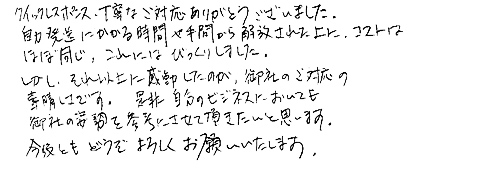 クイックレスポンス・丁寧なご対応ありがとうございました。
自力発送にかかる時間や手間から解放された上に、コストは
ほぼ同じ、これにはびっくりしました。
しかし、それ以上に感動したのが、御社のご対応の
素晴しさです。是非自分のビジネスにおいても
御社の姿勢を参考にさせて頂きたいと思います。
今後ともどうぞよろしくお願いいたします。